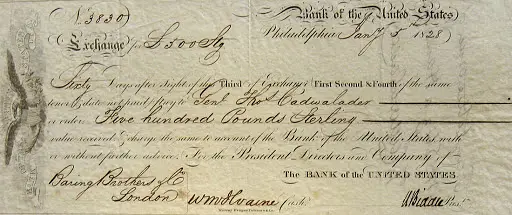 No. 3830 Bank of the United States
Exchange for £500 Stg Philadelphia Jany 5 1828
Sixty Days after Sight of this Third of Exchange First Second & Fourth of the same
tenor & date not paid Pay to Genl Thos Cadwalader
or order Five hundred Pounds Sterling
value received & charge the same to account of the Bank of the United States, with
or without further advice. For the President Directors and Company of
The BANK of the UNITED STATES
Baring Brothers & Co
London W McIlvaine Cashr N Biddle Prest